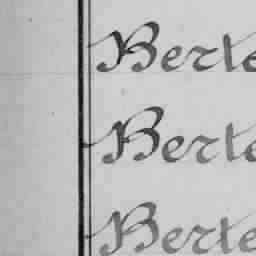 Berte
Berte
Berte